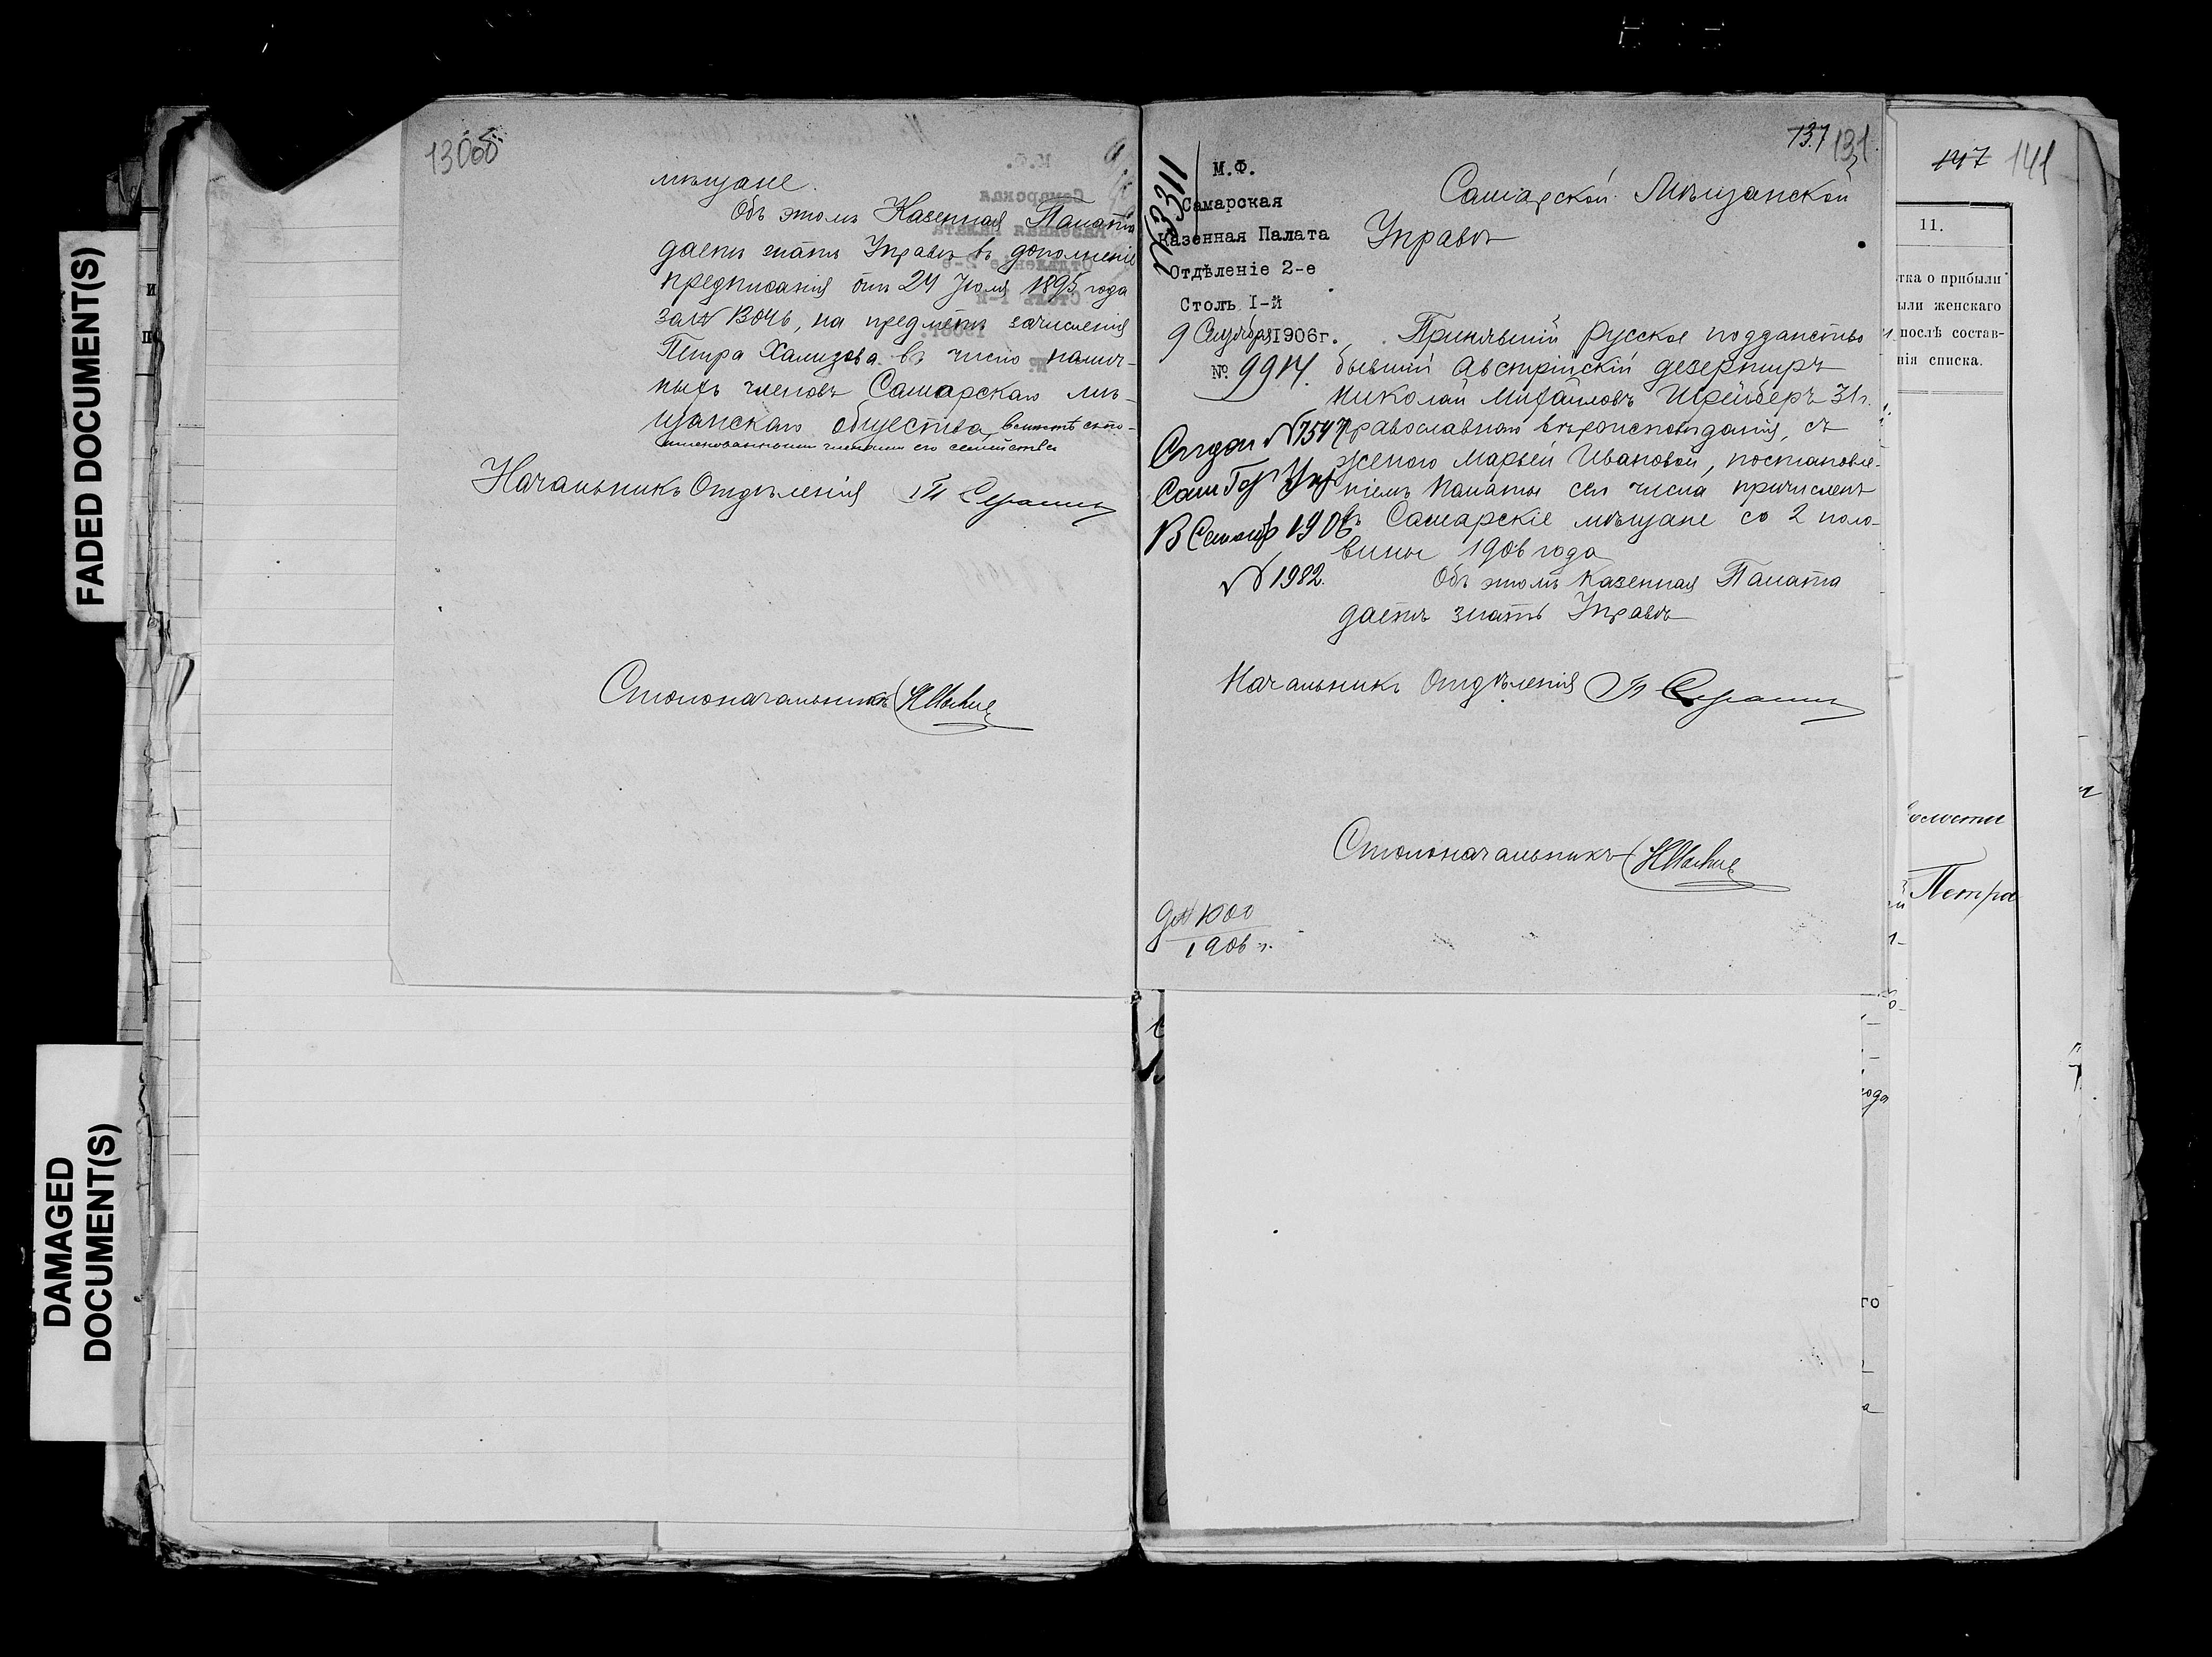 FADED DOCUMENT(S)
DAMAGED
DOCUMENT(S)
130об
мѣщане.
Объ этомъ Казенная Палата
даетъ знать Управѣ въ дополненіе
предписанія отъ 24 Іюля 1895 года
за №, на предметъ зачисленія
Петра Хализова въ число налич-
ныхъ членовъ Самарскаго мѣ-
щанскаго общества, вмѣстѣ съ по-
именованными членами его семейства
Начальникъ Отдѣленія
Столоначальникъ
137 131.
№ 3311
М.Ф.
Самарская
Казенная Палата
Отдѣленіе 2-е
Столъ I-й
9 1906г.
№ 9914.
Самарской Мѣщанской
Управѣ
Принявшій русское подданство
бывшій австрійскій дезертиръ
Николай Михайловъ Шрейберъ 31 г.
православнаго вѣроисповѣданія, съ
женою Марьей Ивановой, постановле-
ніемъ Палаты сего числа причисленъ
въ Самарскіе мѣщане со 2 поло-
вины 1906 года
Объ этомъ Казенная Палата
даетъ знать Управѣ
№ 7547
1906
№ 1982.
Начальникъ Отдѣленія
Столоначальникъ
1906 г.
147 141
11.
тка о прибыли
ыли женскаго
послѣ состав-
нія списка.
Петра